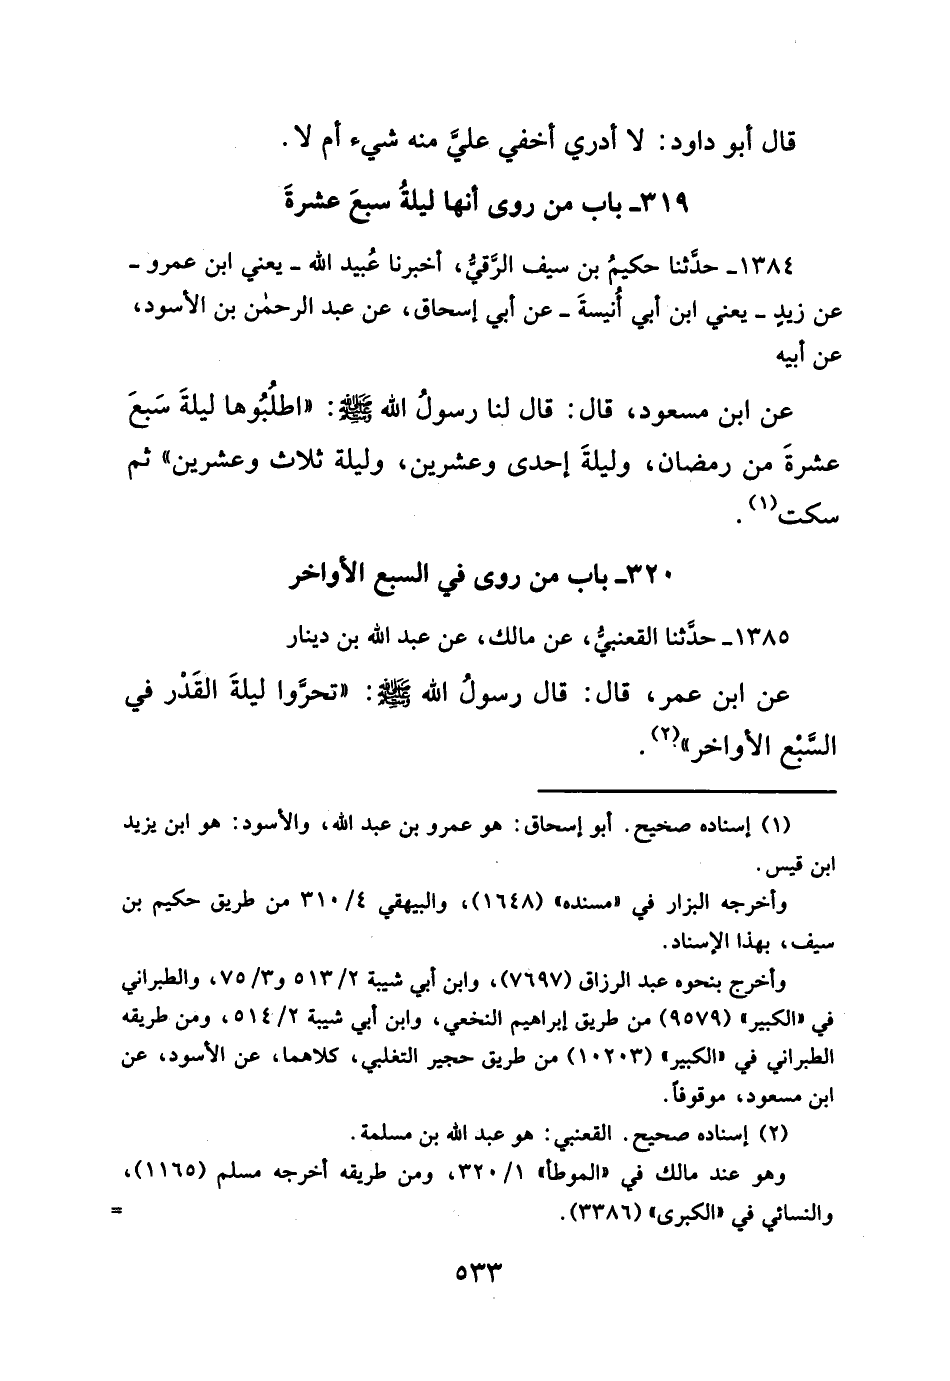 قال أبو داود: لا أدري أخفي عليَّ منه شيء أم لا.
٣١٩ـ باب من روى أنها ليلةُ سبعَ عشرةَ
١٣٨٤ـ حدَّثنا حكيمُ بن سيف الرَّقيُّ، أخبرنا عُبيد الله ـ يعني ابن عمرو ـ
عن زيدٍ ـ يعني ابن أبي أُنيسةَ ـ عن أبي إسحاق، عن عبد الرحمٰن بن الأسود،
عن أبيه
عن ابن مسعود، قال: قال لنا رسولُ الله ﷺ: «اطلُبُوها ليلةَ سَبعَ
عشرةَ من رمضان، وليلةَ إحدى وعشرين، وليلة ثلاث وعشرين» ثم
سكت(١).
٣٢٠ـ باب من روى في السبع الأواخر
١٣٨٥ـ حدَّثنا القعنبيُّ، عن مالك، عن عبد الله بن دينار
عن ابن عمر، قال: قال رسولُ الله ﷺ: «تحرَّوا ليلةَ القَدْر في
السَّبْع الأواخر»(٢).
(١) إسناده صحيح. أبو إسحاق: هو عمرو بن عبد الله، والأسود: هو ابن يزيد
ابن قيس.
وأخرجه البزار في «مسنده» (١٦٤٨)، والبيهقي ٤/ ٣١٠ من طريق حكيم بن
سيف، بهذا الإسناد.
وأخرج بنحوه عبد الرزاق (٧٦٩٧)، وابن أبي شيبة ٢/ ٥١٣ و٣/ ٧٥، والطبراني
في «الكبير» (٩٥٧٩) من طريق إبراهيم النخعي، وابن أبي شيبة ٢/ ٥١٤، ومن طريقه
الطبراني في «الكبير» (١٠٢٠٣) من طريق حجير التغلبي، كلاهما، عن الأسود، عن
ابن مسعود، موقوفاً.
(٢) إسناده صحيح. القعنبي: هو عبد الله بن مسلمة.
وهو عند مالك في «الموطأ» ١/ ٣٢٠، ومن طريقه أخرجه مسلم (١١٦٥)،
والنسائي في «الكبرى» (٣٣٨٦). =
٥٣٣